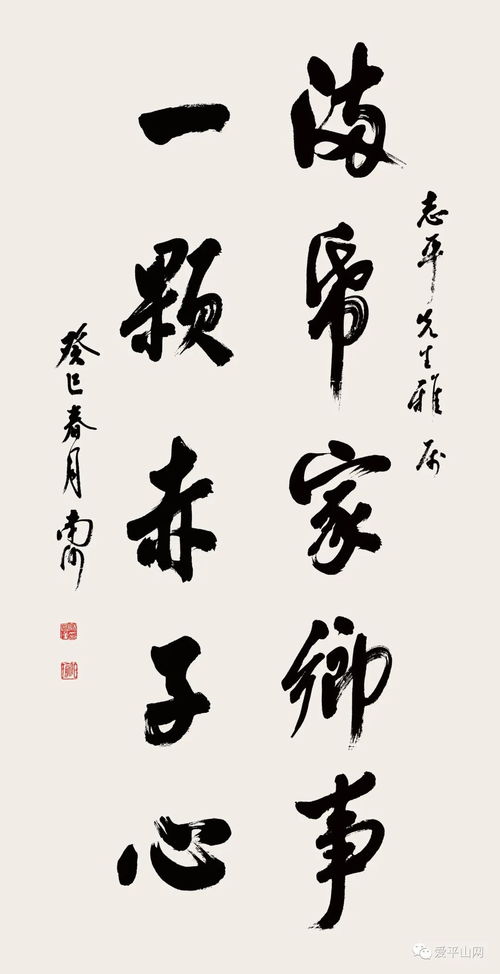 志平先生雅属
满帋家鄉事
一顆赤子心
癸巳春月 南
爱平山网